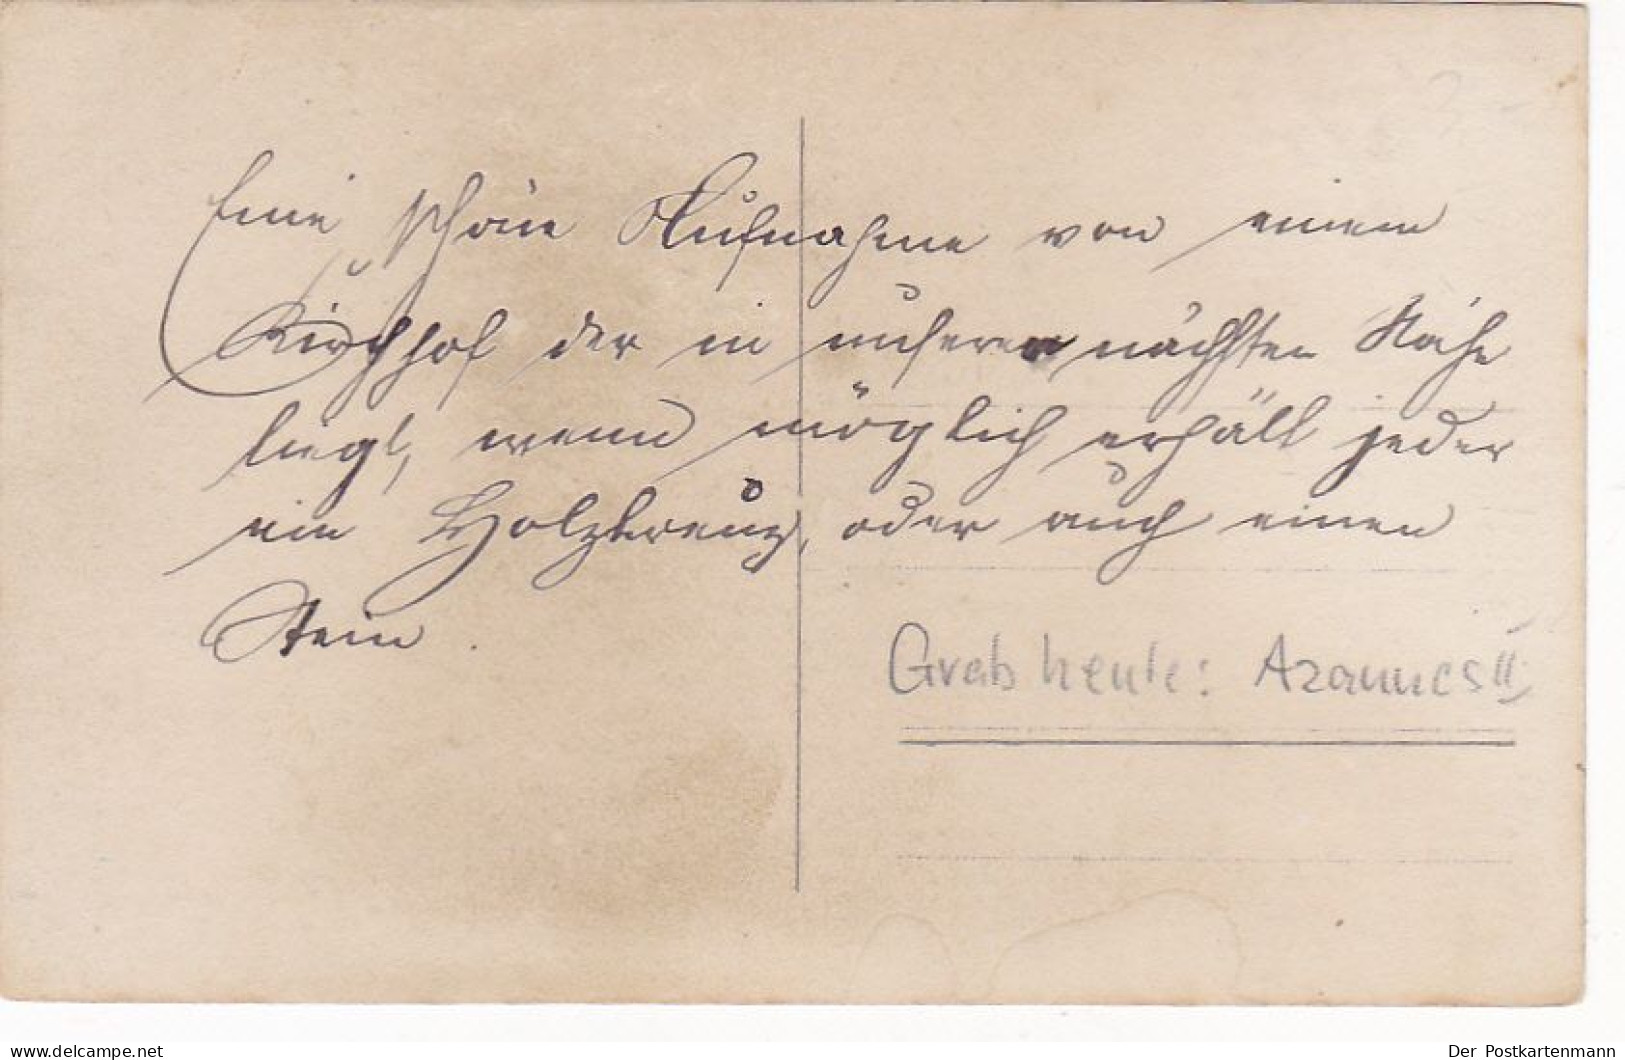 Eine schöne Aufnahme von einem
Kirchhof der in unserer nächsten Nähe
liegt, wenn möglich erhält jeder
ein Holzkreuz, oder auch einen
Stein.
Grab heute: Azannes II
www.delcampe.net
Der Postkartenmann